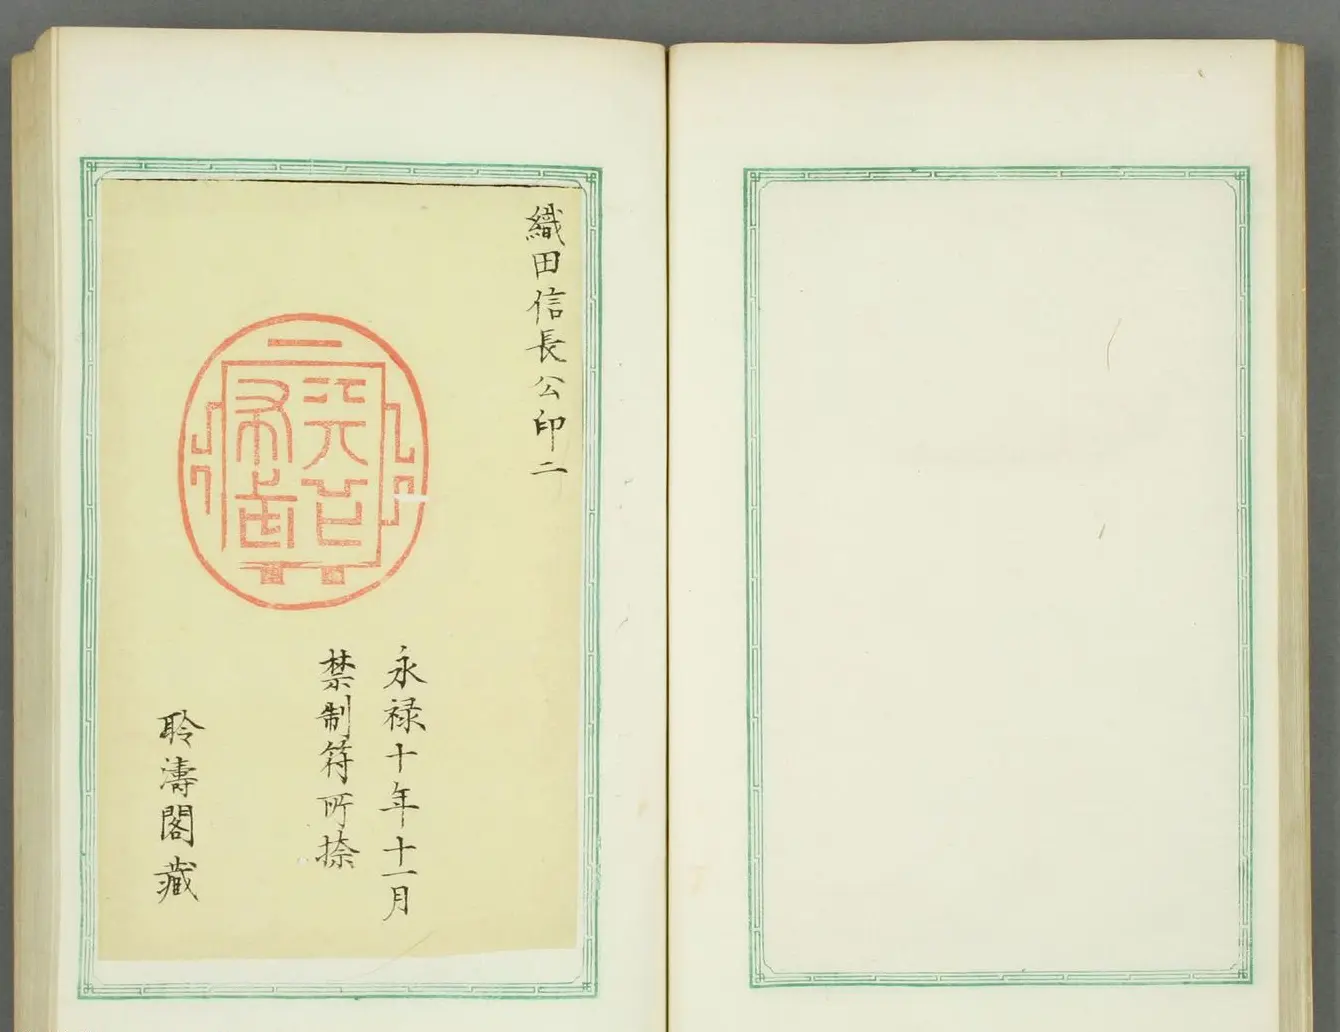 織田信長公印二
永禄十年十一月
禁制符所捺
聆濤閣藏